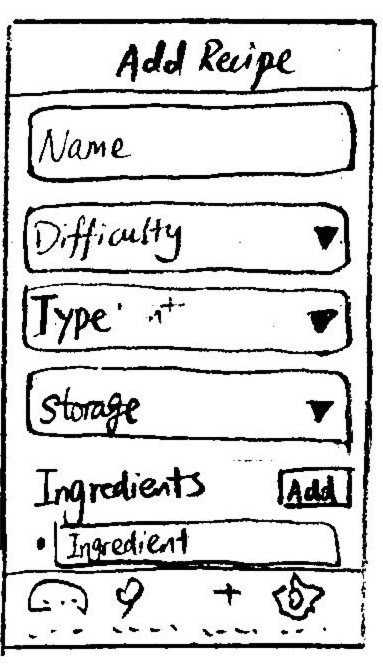 Add Recipe
Name
Difficulty
Type
Storage
Ingredients Add
• Ingredient
+